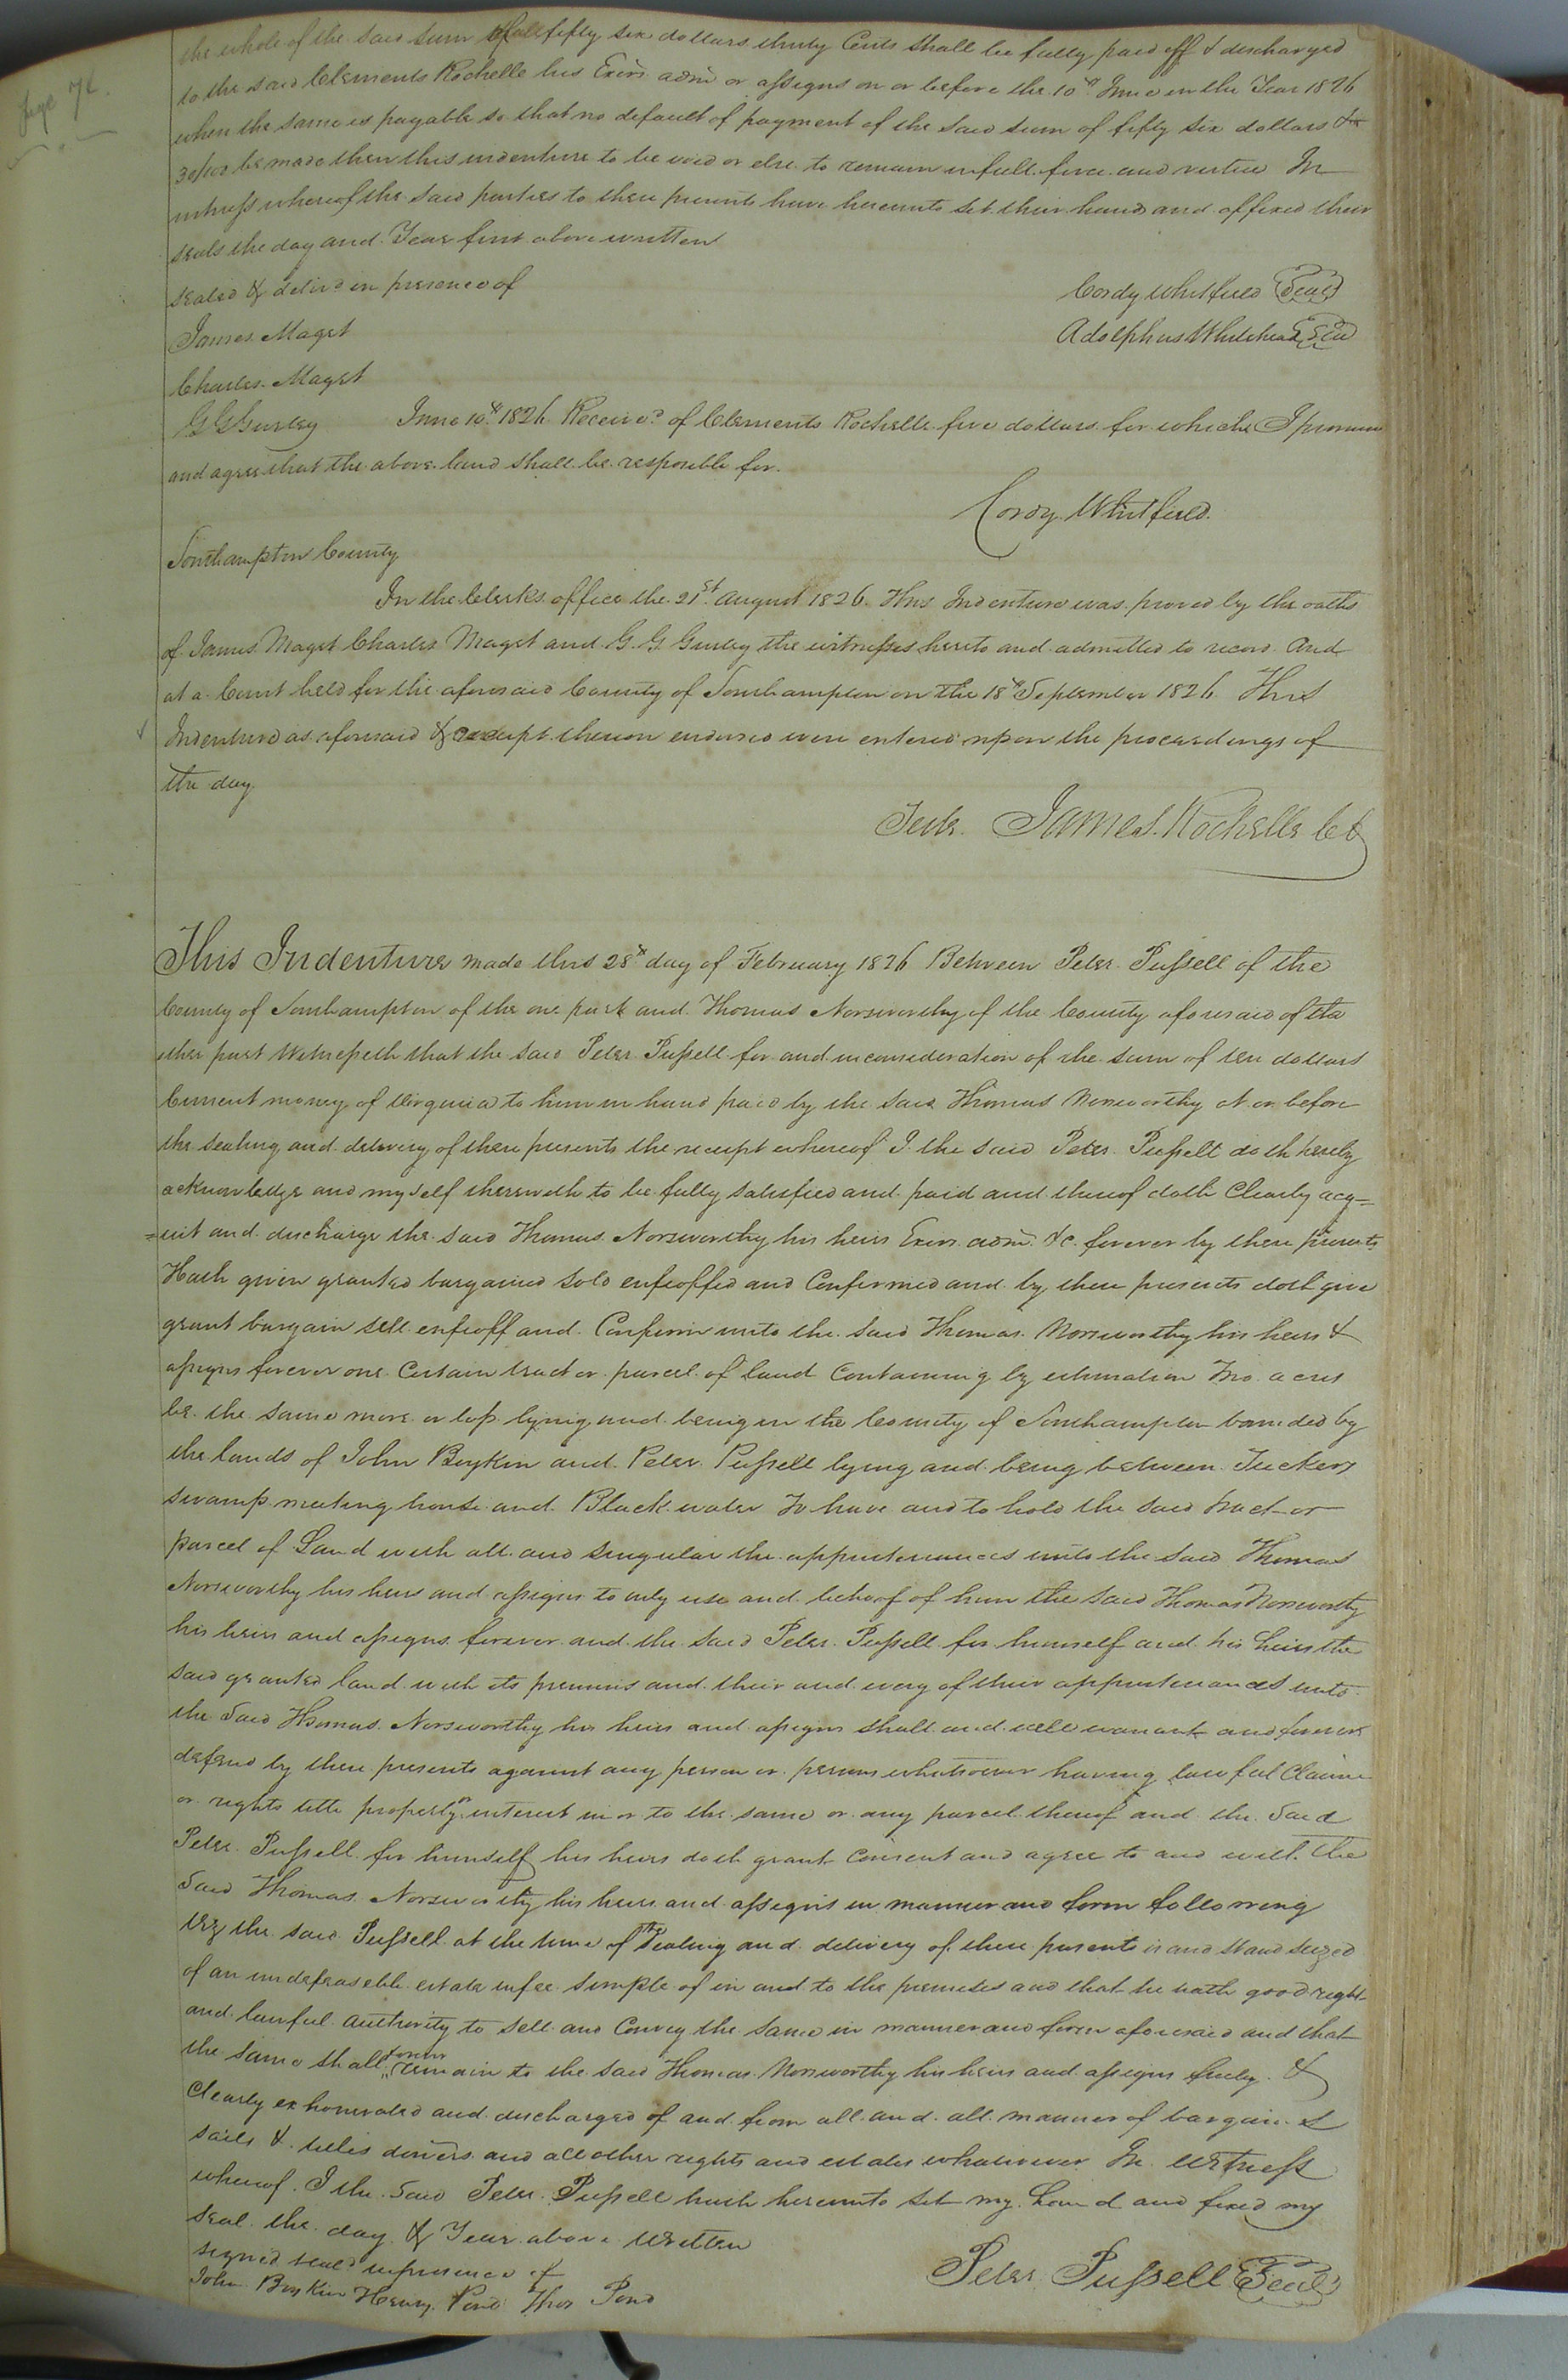 page 72.
the whole of the said sum of fifty six dollars thirty Cents shall be fully paid off & discharged
to the said Clements Rochelle his Exors adm. or assigns on or before the 10th June in the Year 1826
when the same is payable so that no default of payment of the said sum of fifty six dollars &
30/100 be made then this indenture to be void or else to remain in full force and virtue In
witness whereof the said parties to these presents have hereunto set their hands and affixed their
seals the day and Year first above written
sealed & delivd in presence of
Cordy Whitfield Seal
James Maget
Adolphus Whitehead Seal
Charles Maget
G G Gurley June 10th 1826 Receivd. of Clements Rochelle five dollars for which I promise
and agree that the above land shall be resposible for.
Cordy Whitfield.
Southampton County
In the Clerks office the 21st. August 1826. This Indenture was proved by the oaths
of James Maget Charles Maget and G. G. Gurley the witnesses hereto and admitted to record And
at a Court held for the aforesaid County of Southampton on the 18th September 1826 This
Indenture as aforesaid & receipt thereon endorsed were entered upon the proceedings of
the day
Teste. James Rochelle CC
This Indenture made this 28th day of February 1826 Between Peter Pussell of the
County of Southampton of the one part and Thomas Norsworthy of the County aforesaid of the
other part Witnesseth that the said Peter Pussell for and in consideration of the sum of ten dollars
Current money of Virginia to him in hand paid by the said Thomas Norsworthy at or before
the sealing and delivery of these presents the receipt whereof I the said Peter Pussell doth hereby
acknowledge and myself therewith to be fully satisfied and paid and thereof doth Clearly acq=
=uit and discharge the said Thomas Norsworthy his heirs Exors. adm. &c. forever by these presents
Hath given granted bargained sold enfeoffed and Confirmed and by these presents doth give
grant bargain sell enfeoff and Confirm unto the said Thomas Norsworthy his heirs &
assigns forever one Certain tract or parcel of land Containing by estimation Two acres
be the same more or less lying and being in the County of Southampton bounded by
the lands of John Boykin and Peter Pussell lying and being between Tuckers
swamp meeting house and Black water To have and to hold the said tract or
parcel of Land with all and singular the appurtenances unto the said Thomas
Norsworthy his heirs and assigns to only use and behoof of him the said Thomas Norsworthy
his heirs and assigns forever and the said Peter Pussell for himself and his heirs the
said granted land with its premises and their and every of their appurtenances unto
the said Thomas Norsworthy his heirs and assigns shall and will warrant and forever
defend by these presents against any person or persons whatsoever having lawful Claim
or rights title property or interest in or to the same or any parcel thereof and the said
Peter Pussell for himself his heirs doth grant Consent and agree to and with the
said Thomas Norsworthy his heirs and assigns in manner and form following
viz the said Pussell at the time of the sealing and delivery of these presents is and stand seized
of an indefeaseble estate in fee simple of in and to the premises and that he hath good right
and lawful authority to sell and Convey the same in manner and form aforesaid and that
the same shall forever remain to the said Thomas Norsworthy his heirs and assigns freely &
Clearly exhonerated and discharged of and from all and all manner of bargains
sales & titles dowers and all other rights and estates whatsoever In Witness
whereof I the said Peter Pussell hath hereunto set my hand and fixed my
seal the day & Year above written
signed seald in presence of
Peter Pussell Seal
John Boykin Henry Pond Thos Pond